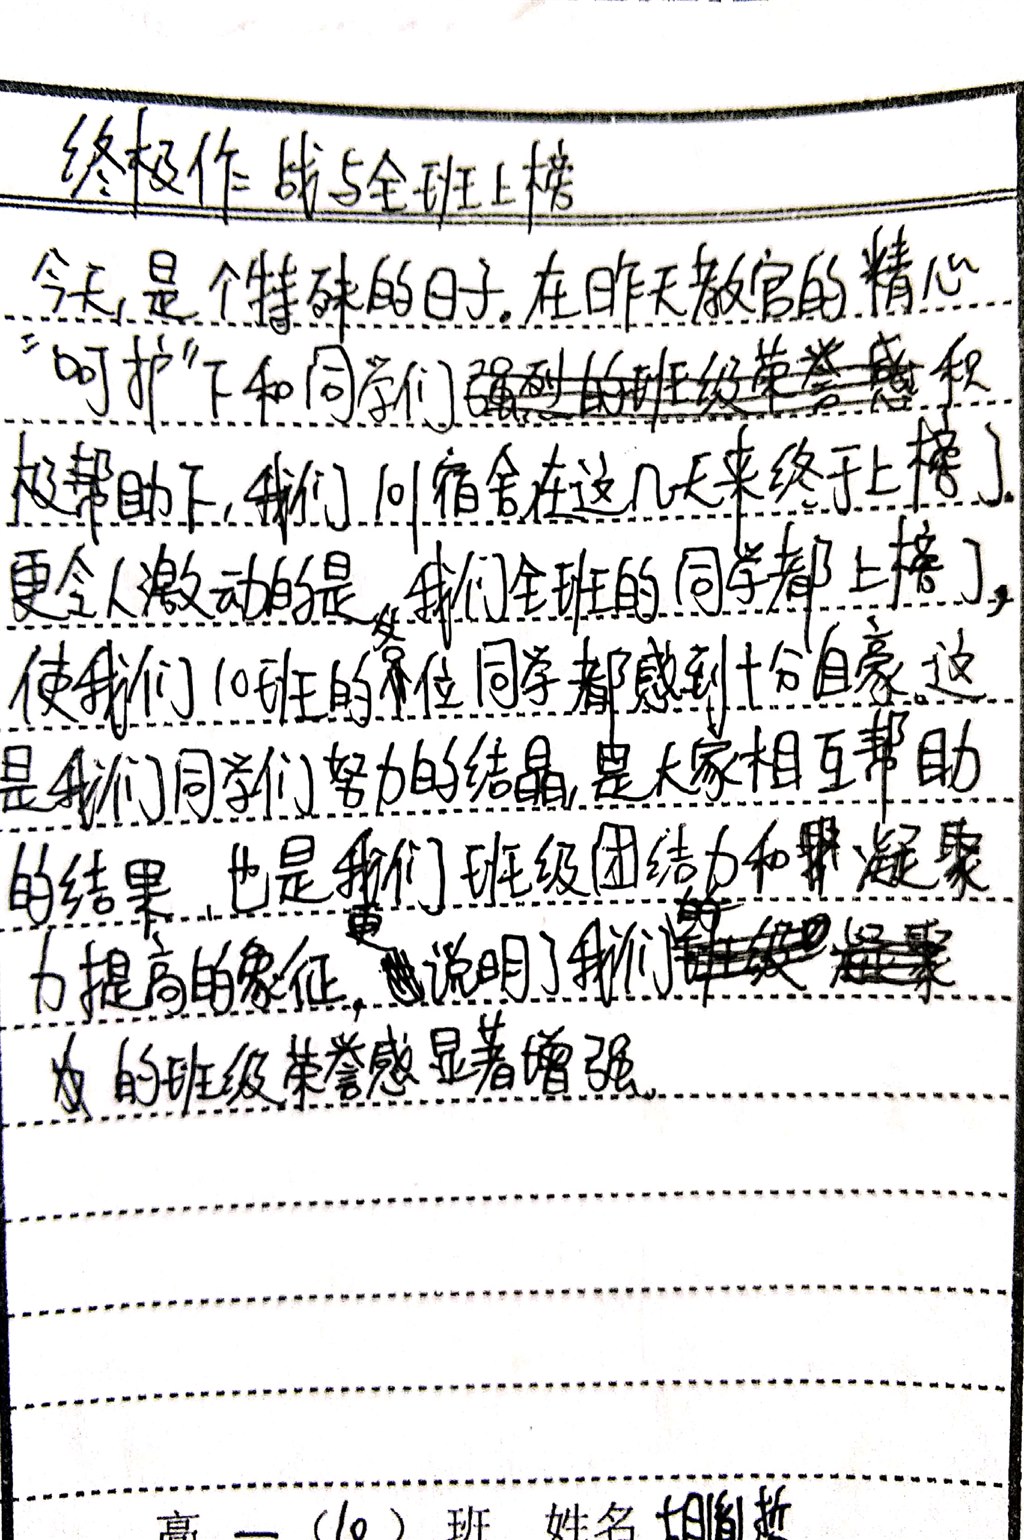 终极作战与全班上榜
今天,是个特殊的日子.在昨天教官的精心
“呵护”下和同学们强烈的班级荣誉感积
极帮助下,我们101宿舍在这几天来终于上榜了.
更令人激动的是,我们全班的同学都上榜了,
使我们10班的各位同学都感到十分自豪。这
是我们同学们努力的结晶,是大家相互帮助
的结果,也是我们班级团结力和凝聚
力提高的象征,更说明了我们的班级凝聚
的班级荣誉感显著增强。
高一(10)班 姓名胡